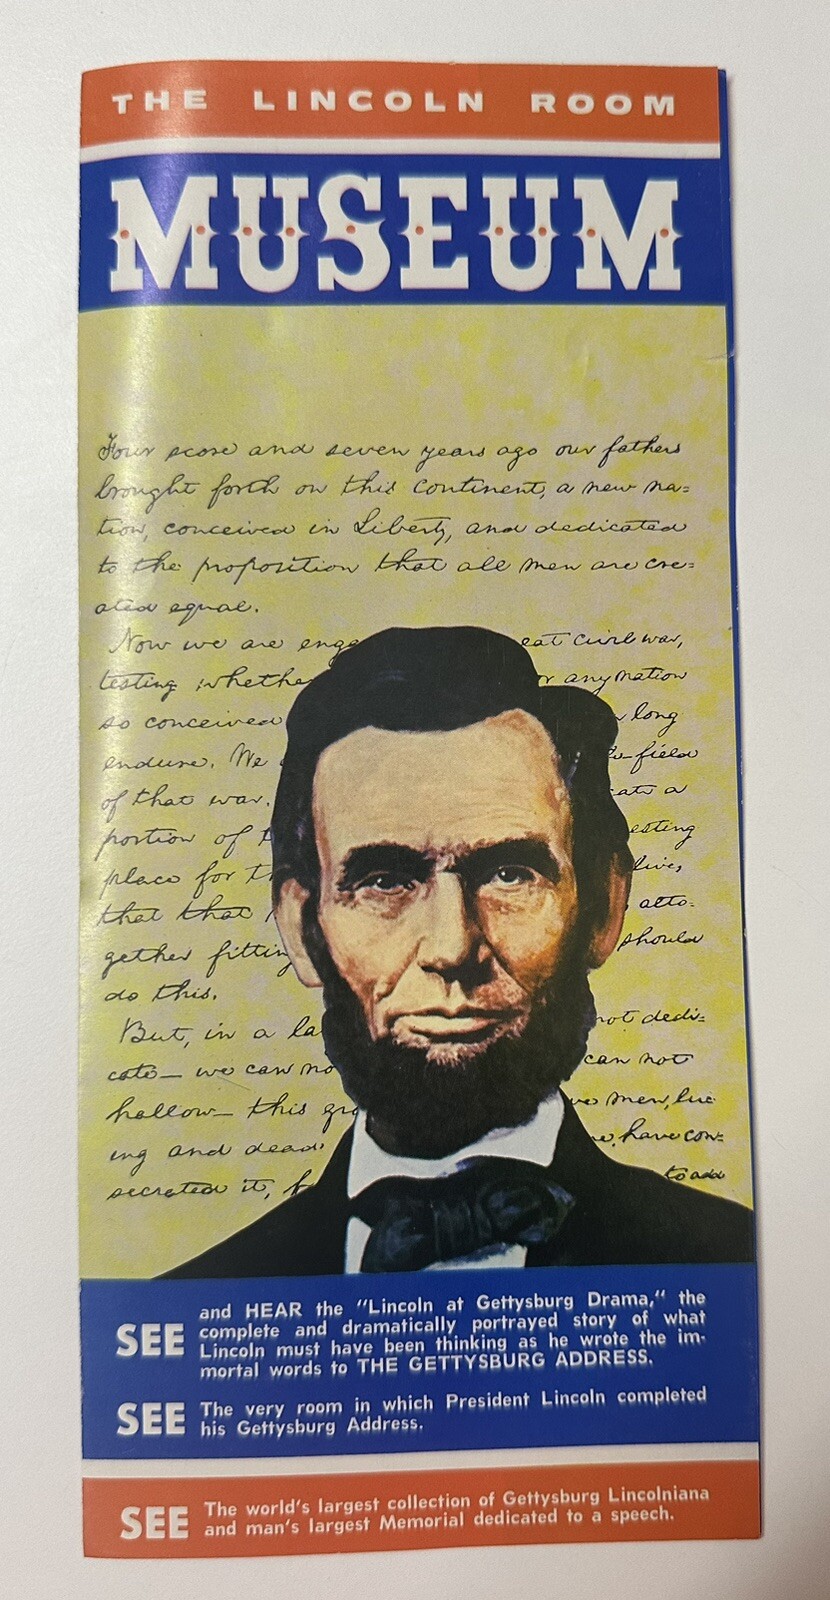 THE LINCOLN ROOM
MUSEUM
Four score and seven years ago our fathers
brought forth on this continent, a new na=
tion, conceived in Liberty, and dedicated
to the proposition that all men are cre=
ated equal.
Now we are enga eat civil war,
testing whethe or any nation
so conceived long
endure. We field
of that war. cate a
portion of t esting
place for th live,
that that alto=
gether fitting should
do this.
But, in a la not dedi=
cate — we can no can not
hallow — this gro men, liv=
ing and dead have con=
secrated it, to add
SEE and HEAR the "Lincoln at Gettysburg Drama," the
complete and dramatically portrayed story of what
Lincoln must have been thinking as he wrote the im-
mortal words to THE GETTYSBURG ADDRESS.
SEE The very room in which President Lincoln completed
his Gettysburg Address.
SEE The world's largest collection of Gettysburg Lincolniana
and man's largest Memorial dedicated to a speech.